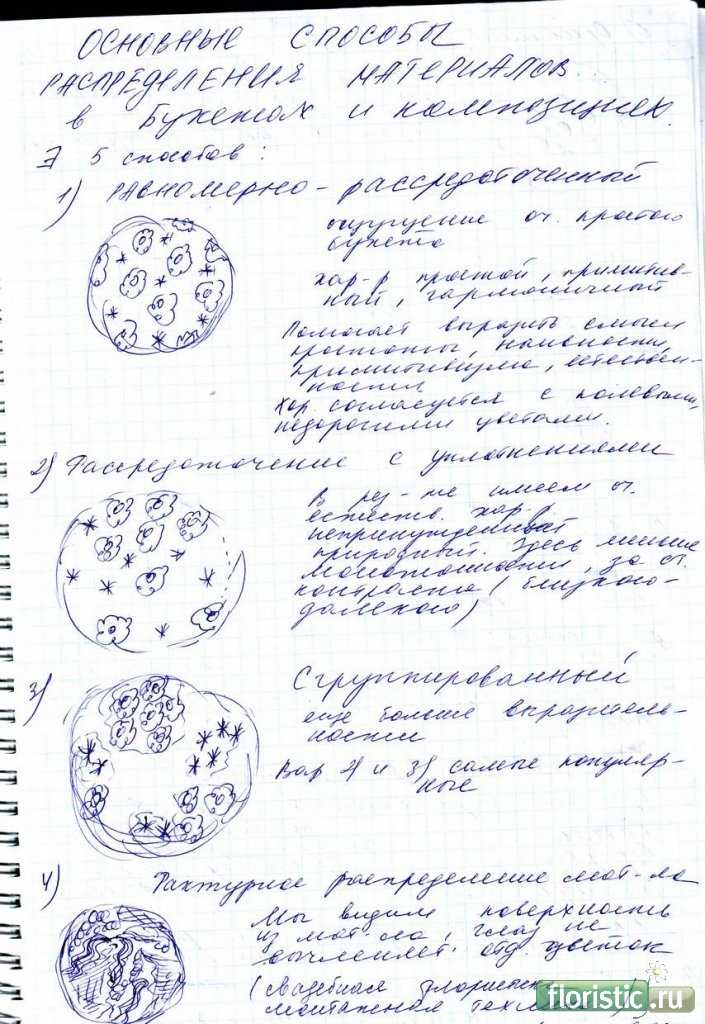 ОСНОВНЫЕ СПОСОБЫ
РАСПРЕДЕЛЕНИЯ МАТЕРИАЛОВ
в Букетах и композициях.
∃ 5 способов:
1) РАВНОМЕРНО-рассредоточенный
ощущение оч. простого
букета
хар-р простой, примитив-
ный, гармоничный
Помогает выразить смысл
простоты, наивности,
примитивизма, естествен-
ности
Хар. согласуется с полевыми,
недорогими цветами.
2) Рассредоточение с уплотнениями
В рез-те имеем оч.
естеств. хар-р
непринужденный
природный. Здесь меньше
монотонности, за сч.
контраста (близкого-
далекого)
3) Сгруппированный
еще больше выразитель-
ности
Вар 2) и 3) самые популяр-
ные
4) Фактурное распределение мат-ла
Мы видим поверхность
из мат-ла, глаз не
вычленяет отд. цветок
(свадебная
монтажная техн
floristic.ru